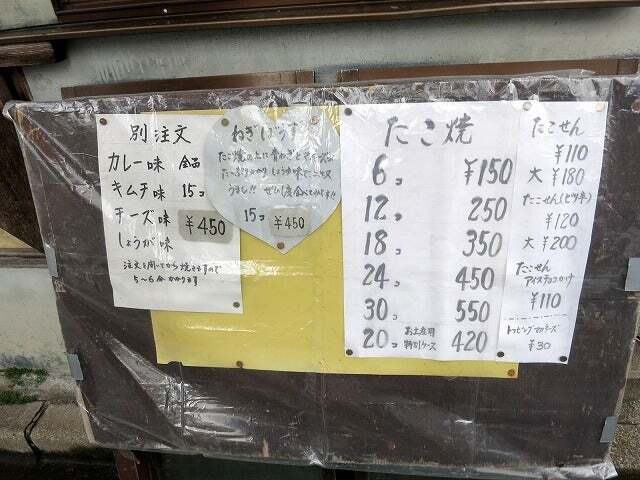 別注文
カレー味 全品
キムチ味 15コ
チーズ味 ¥450
しょうが味
注文を聞いてから焼きますので
5〜6分かかります
ねぎぼうず
たこ焼の上に青ねぎとマヨネーズ
たっぷりかかり しょうゆ味で
うまし!! ぜひ1度食べてみて!!
15コ ¥450
たこ焼
6コ ¥150
12コ 250
18コ 350
24コ 450
30コ 550
20コ お土産用 特別ケース 420
たこせん
¥110
大 ¥180
たこせん(ピリ辛)
¥120
大 ¥200
たこせん
アイスチョコかけ
¥110
トッピングマヨネーズ
¥30